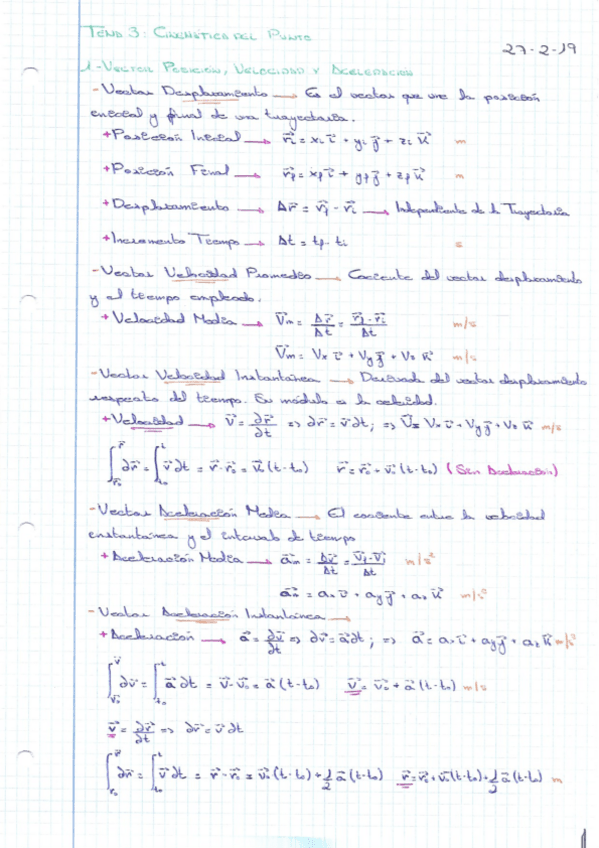 TEMA 3: CINEMÁTICA DEL PUNTO
27-2-19
1.-VECTOR POSICIÓN, VELOCIDAD Y ACELERACIÓN
-Vector Desplazamiento → Es el vector que une la posición
inicial y final de una trayectoria.
+Posición Inicial → r⃗i = xi i⃗ + yi j⃗ + zi k⃗ m
+Posición Final → r⃗f = xf i⃗ + yf j⃗ + zf k⃗ m
+Desplazamiento → Δr⃗ = r⃗f - r⃗i → Independiente de la Trayectoria
+Incremento Tiempo → Δt = tf - ti s
-Vector Velocidad Promedio → Cociente del vector desplazamiento
y el tiempo empleado.
+Velocidad Media → V⃗m = Δr⃗/Δt = (r⃗f - r⃗i)/Δt m/s
V⃗m = Vx i⃗ + Vy j⃗ + Vz k⃗ m/s
-Vector Velocidad Instantánea → Derivada del vector desplazamiento
respecto del tiempo. Su módulo es la celeridad.
+Velocidad → v⃗ = ∂r⃗/∂t => ∂r⃗ = v⃗ dt; => V⃗ = Vx i⃗ + Vy j⃗ + Vz k⃗ m/s
∫ ∂r⃗ = ∫ v⃗ dt = r⃗ - r⃗o = v⃗ (t-to) r⃗ = r⃗o + v⃗o (t-to) (Sin Aceleración)
-Vector Aceleración Media → El cociente entre la velocidad
instantánea y el intervalo de tiempo
+Aceleración Media → a⃗m = Δv⃗/Δt = (v⃗f - v⃗i)/Δt m/s²
a⃗m = ax i⃗ + ay j⃗ + az k⃗ m/s²
-Vector Aceleración Instantánea →
+Aceleración → a⃗ = ∂v⃗/∂t => ∂v⃗ = a⃗ dt; => a⃗ = ax i⃗ + ay j⃗ + az k⃗ m/s²
∫ ∂v⃗ = ∫ a⃗ dt = v⃗ - v⃗o = a⃗ (t-to) v⃗ = v⃗o + a⃗ (t-to) m/s
v⃗ = ∂r⃗/∂t => ∂r⃗ = v⃗ dt
∫ ∂r⃗ = ∫ v⃗ dt = r⃗ - r⃗o = v⃗o (t-to) + 1/2 a⃗ (t-to) r⃗ = r⃗o + v⃗o (t-to) + 1/2 a⃗ (t-to) m
1